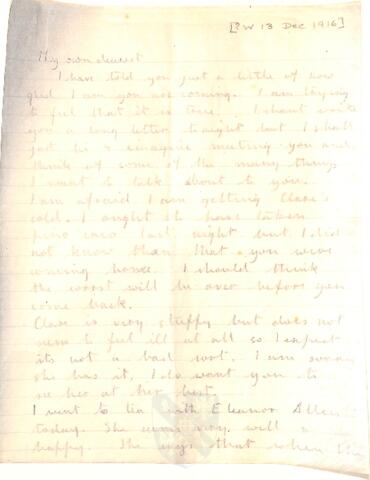 [?W 13 Dec 1916]
My own dearest
I have told you just a little of how
glad I am you are coming. I am trying
to feel that it is true. I shant write
you a long letter tonight but I shall
just lie & imagine meeting you and
think of some of the many things
I want to talk about to you.
I am afraid I am getting Clare's
cold. I ought to have taken
last night but I did
not know then that you were
coming home. I should think
the worst will be over before you
come back.
Clare is very stuffy but does not
seem to feel ill at all so I expect
its not a bad sort. I am sorry
she has it, I do want you to
see her at her best.
I went to tea with Eleanor Allen
today. She seems very well &
happy. She says that when